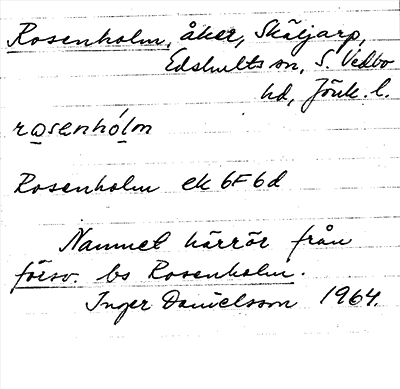 Rosenholm, åker, Skäljarp,
Edshults sn, S. Vedbo
hd, Jönk. l.
rosenhólm
Rosenholm ek 6F6d
Namnet härrör från
försv. bs Rosenholm.
Inger Danielsson 1964.